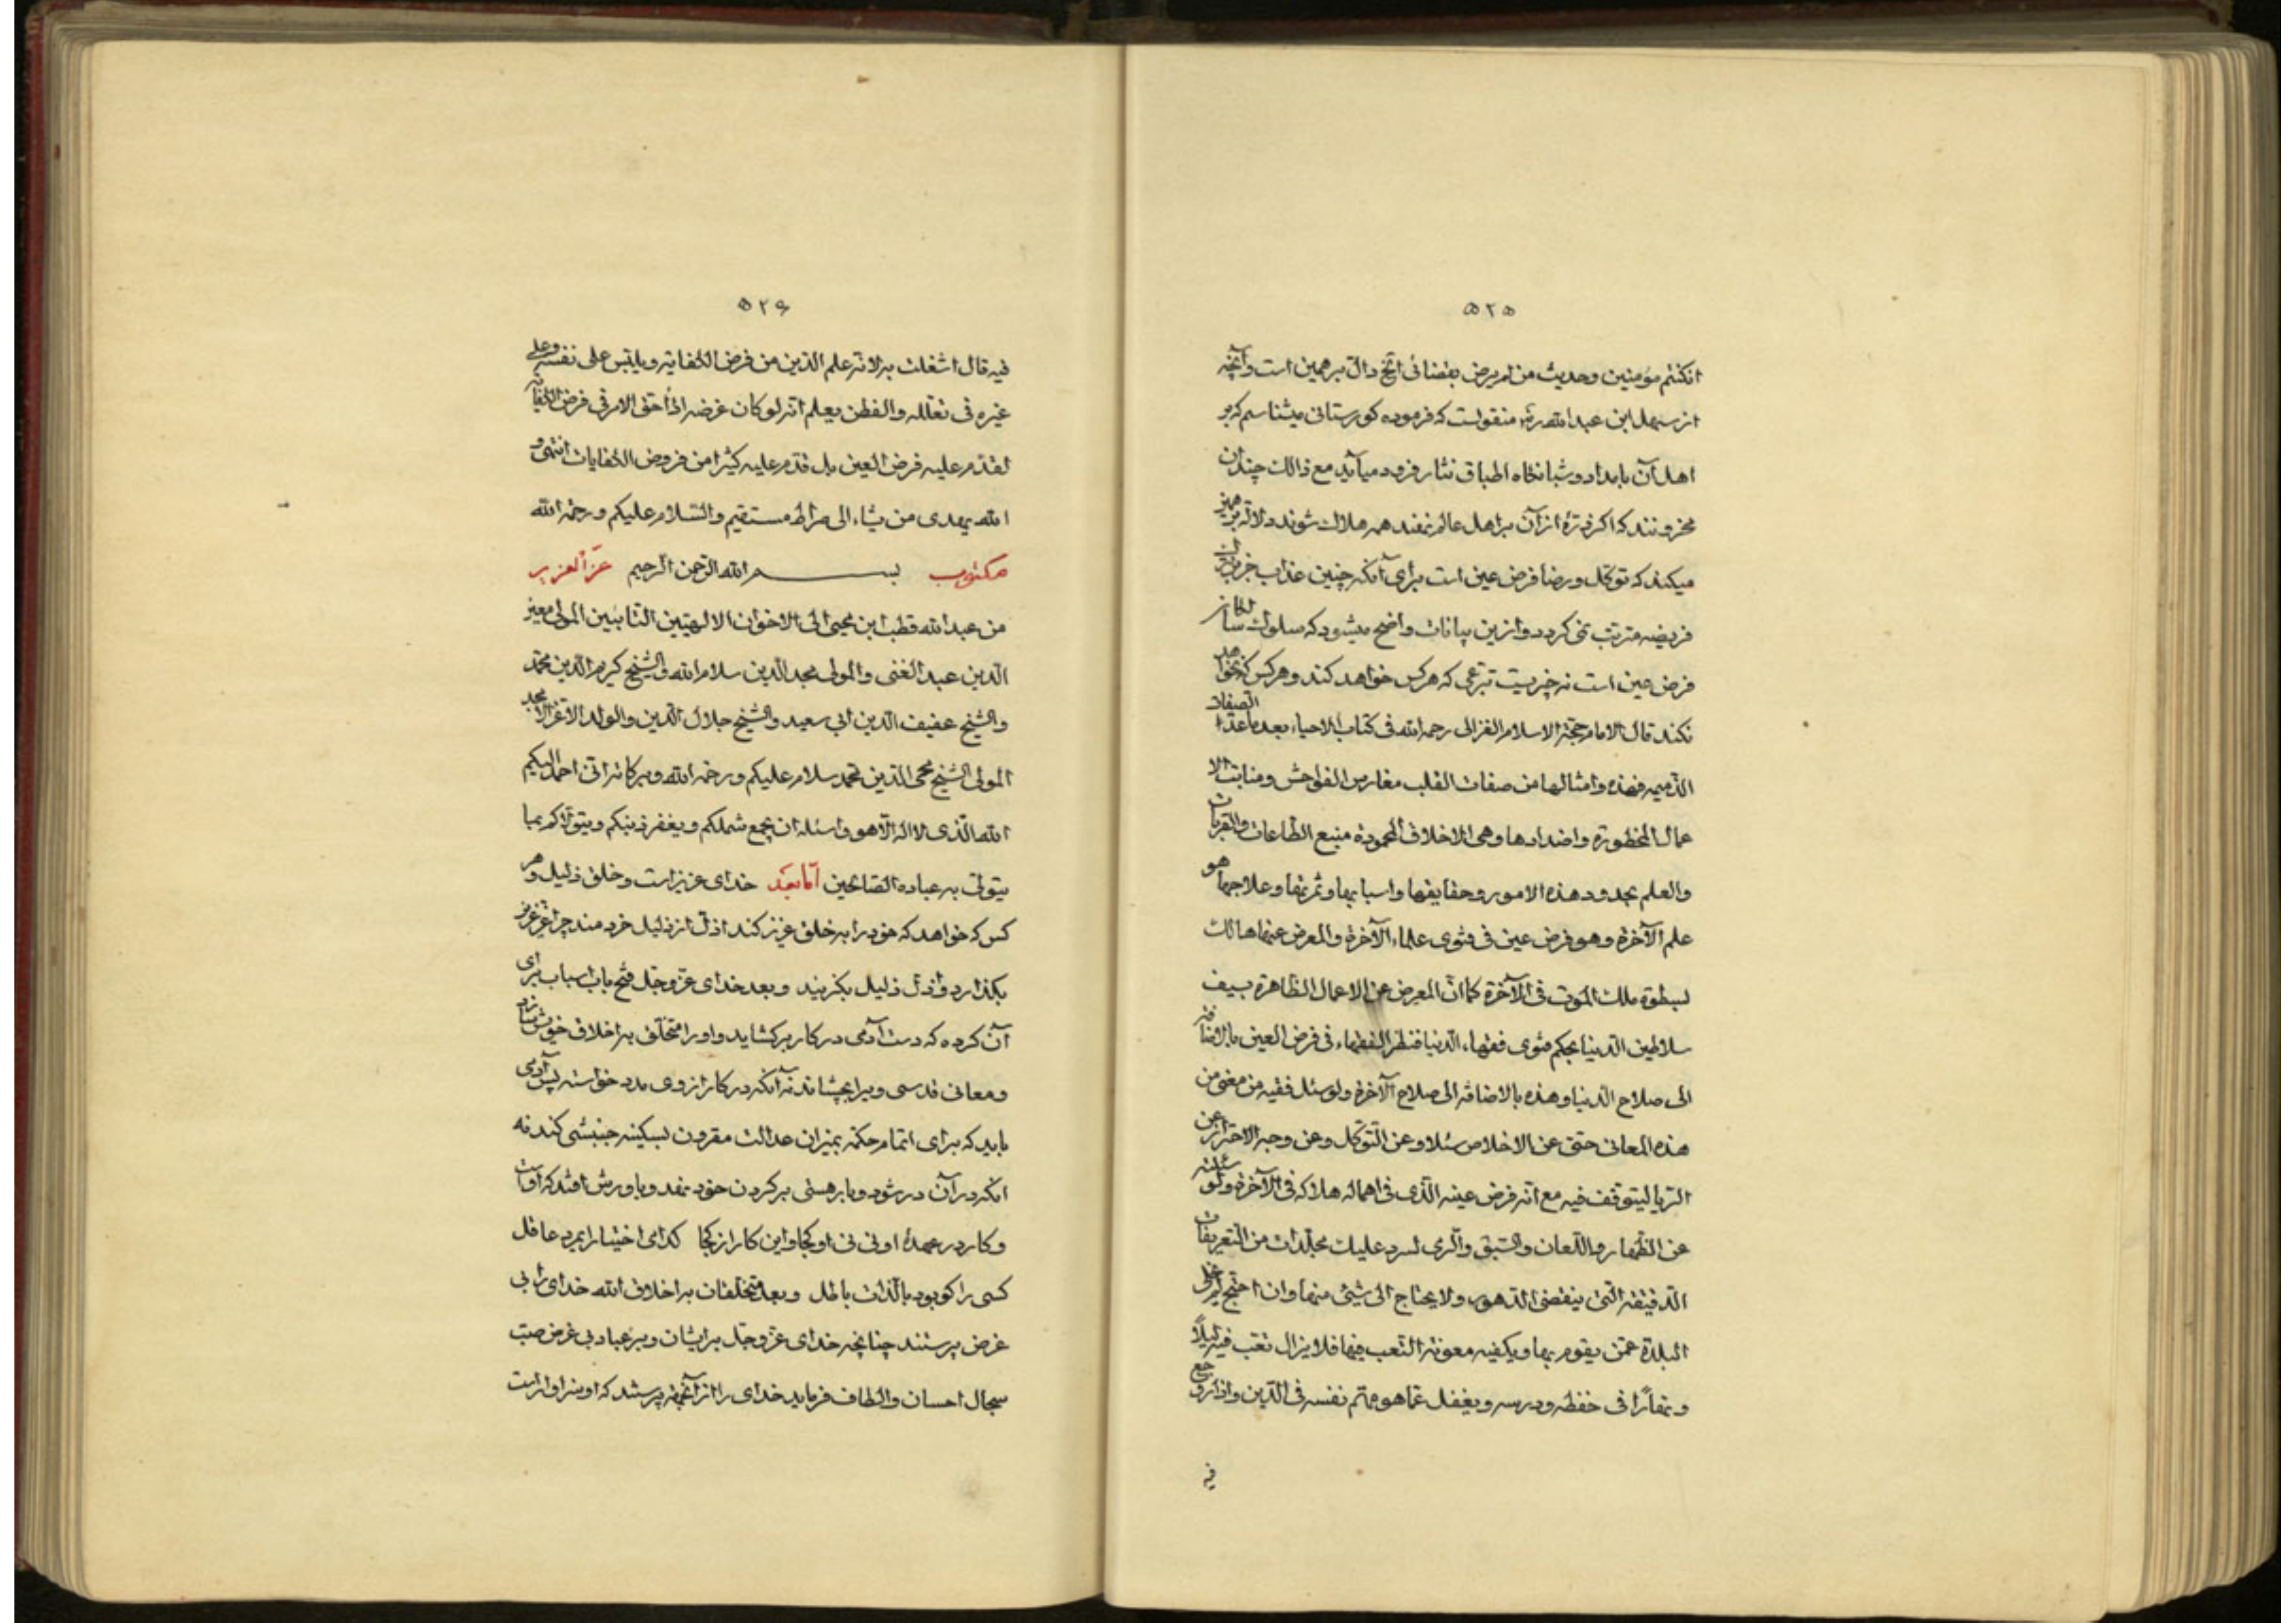 ۵۲۵
ان کنتم مؤمنین وحدیث من لم یرض بقضائی الخ دال برهمین است وآنچه
از سهل ابن عبد الله رض منقولست که فرموده کورستانی میشناسم که بر
اهل آن بامداد و شبانکاه اطباق نثار فرود میآید مع ذالک چندان
محزونند که اکر ذرهٔ از آن بر اهل عالم نهند همه هلاک شوند دلاله برهمین
میکند که توکل ورضا فرض عین است برای آنکه چنین عذاب جز بر ترک
فریضه مترتب نمی کردد وازین بیانات واضح میشود که سلوک
فرض عین است نه چیزیست تبرعی که هرکس خواهد کند وهرکس که نخواهد
نکند قال الامام حجة الاسلام الغزالی رحمه الله فی کتاب الاحیاء بعد ما عد الصفات
الذمیمه فهذه وامثالها من صفات القلب مغارس الفواحش ومنابت الا
عمال المحظورة واضدادها وهی الاخلاق المحمودة منبع الطاعات والقربات
والعلم بحدود هذه الامور وحقایقها واسبابها وثمرتها وعلاجها هو
علم الآخرة وهو فرض عین فی فتوی علماء الآخرة والمعرض عنها هالک
لبسطوة ملک الموت فی الآخرة کما ان المعرض عن الاعمال الظاهرة بسیف
سلاطین الدنیا بحکم فتوی فقهاء الدنیا فنظر الفقهاء فی فرض العین بالاضافة
الی صلاح الدنیا وهذه بالاضافة الی صلاح الآخرة ولو سئل فقیه من معنی من
هذه المعانی حتی عن الاخلاص مثلا وعن التوکل وعن وجه الاحتراز عن
الریا لیتوقف فیه مع انه فرض عینه الذی فی اهماله هلاکه فی الآخرة ولو سئلته
عن الظهار واللعان والسبق والری لسرد علیک مجلدات من التعریفات
الدقیقة التی ینقضی الدهور ولا یحتاج الی شیئ منها وان احتج لم یخل
البلدة عمن یقوم بها ویکفیه معونة التعب فیها فلا یزال تعب فیه لیلاً
ونهاراً فی حفظه ودرسه ویغفل عما هو مهتم نفسه فی الدین واذا روجع
فیه
۵۲۶
فیه قال اشغلت به لانه علم الدین من فرض الکفایة ویلبس علی نفسه وعلی
غیره فی تعلله والفطن یعلم انه لو کان غرضه اداء حق الامر فی فرض الکفایة
لقدم علیه فرض العین بل قدم علیه کثیرا من فروض الکفایات انتهی و
الله یهدی من یشاء الی صراط مستقیم والسلام علیکم ورحمة الله
مکتوب بسم الله الرحمن الرحیم عز العزیز
من عبد الله قطب ابن محیی الی الاخوان الالهیین التائبین المولی معیز
الدین عبد الغنی والمولی مجد الدین سلام الله والشیخ کریم الدین محمد
والشیخ عفیف الدین ابی سعید والشیخ جلال الدین والولد الاعز الامجد
المولی الشیخ محی الدین محمد سلام علیکم ورحمة الله وبرکاته انی احمد الیکم
الله الذی لا اله الا هو واسئله ان یجمع شملکم ویغفر ذنبکم ویتولاکم بما
یتولی به عباده الصالحین اما بعد خدای عزیز است وخلق ذلیل وهر
کس که خواهد که خود را به خلق عزیز کند اذل از ذلیل خردمند چرا عز عزیز
بکذارد واذل ذلیل بکزیند وبعد خدای عز وجل فتح باب اسباب برای
آن کرده که دست آدمی در کار برکشاید واو را متخلق به اخلاق خویش
ومعانی قدسی ویرا بچشاند نه آنکه در کار از وی مدد خواسته پس آدمی
باید که برای اتمام حکمة بمیزان عدالت مقرون بسکینه جنبشی کند نه
انکه در آن در شود وبار هستی بر کردن خود نهد وباورش افتد که اوست
وکار در عهدهٔ او نی نی او کجا واین کار از کجا کدای اختیار ایمرد عاقل
کسی را کو بود بالذات باطل وبعد متخلقان به اخلاق الله خدای را بی
غرض پرستند چنانچه خدای عز وجل بر ایشان وبر عباد بی غرض صب
سجال احسان والطاف فرماید خدای را از آنجهة پرستند که او سزاوار است